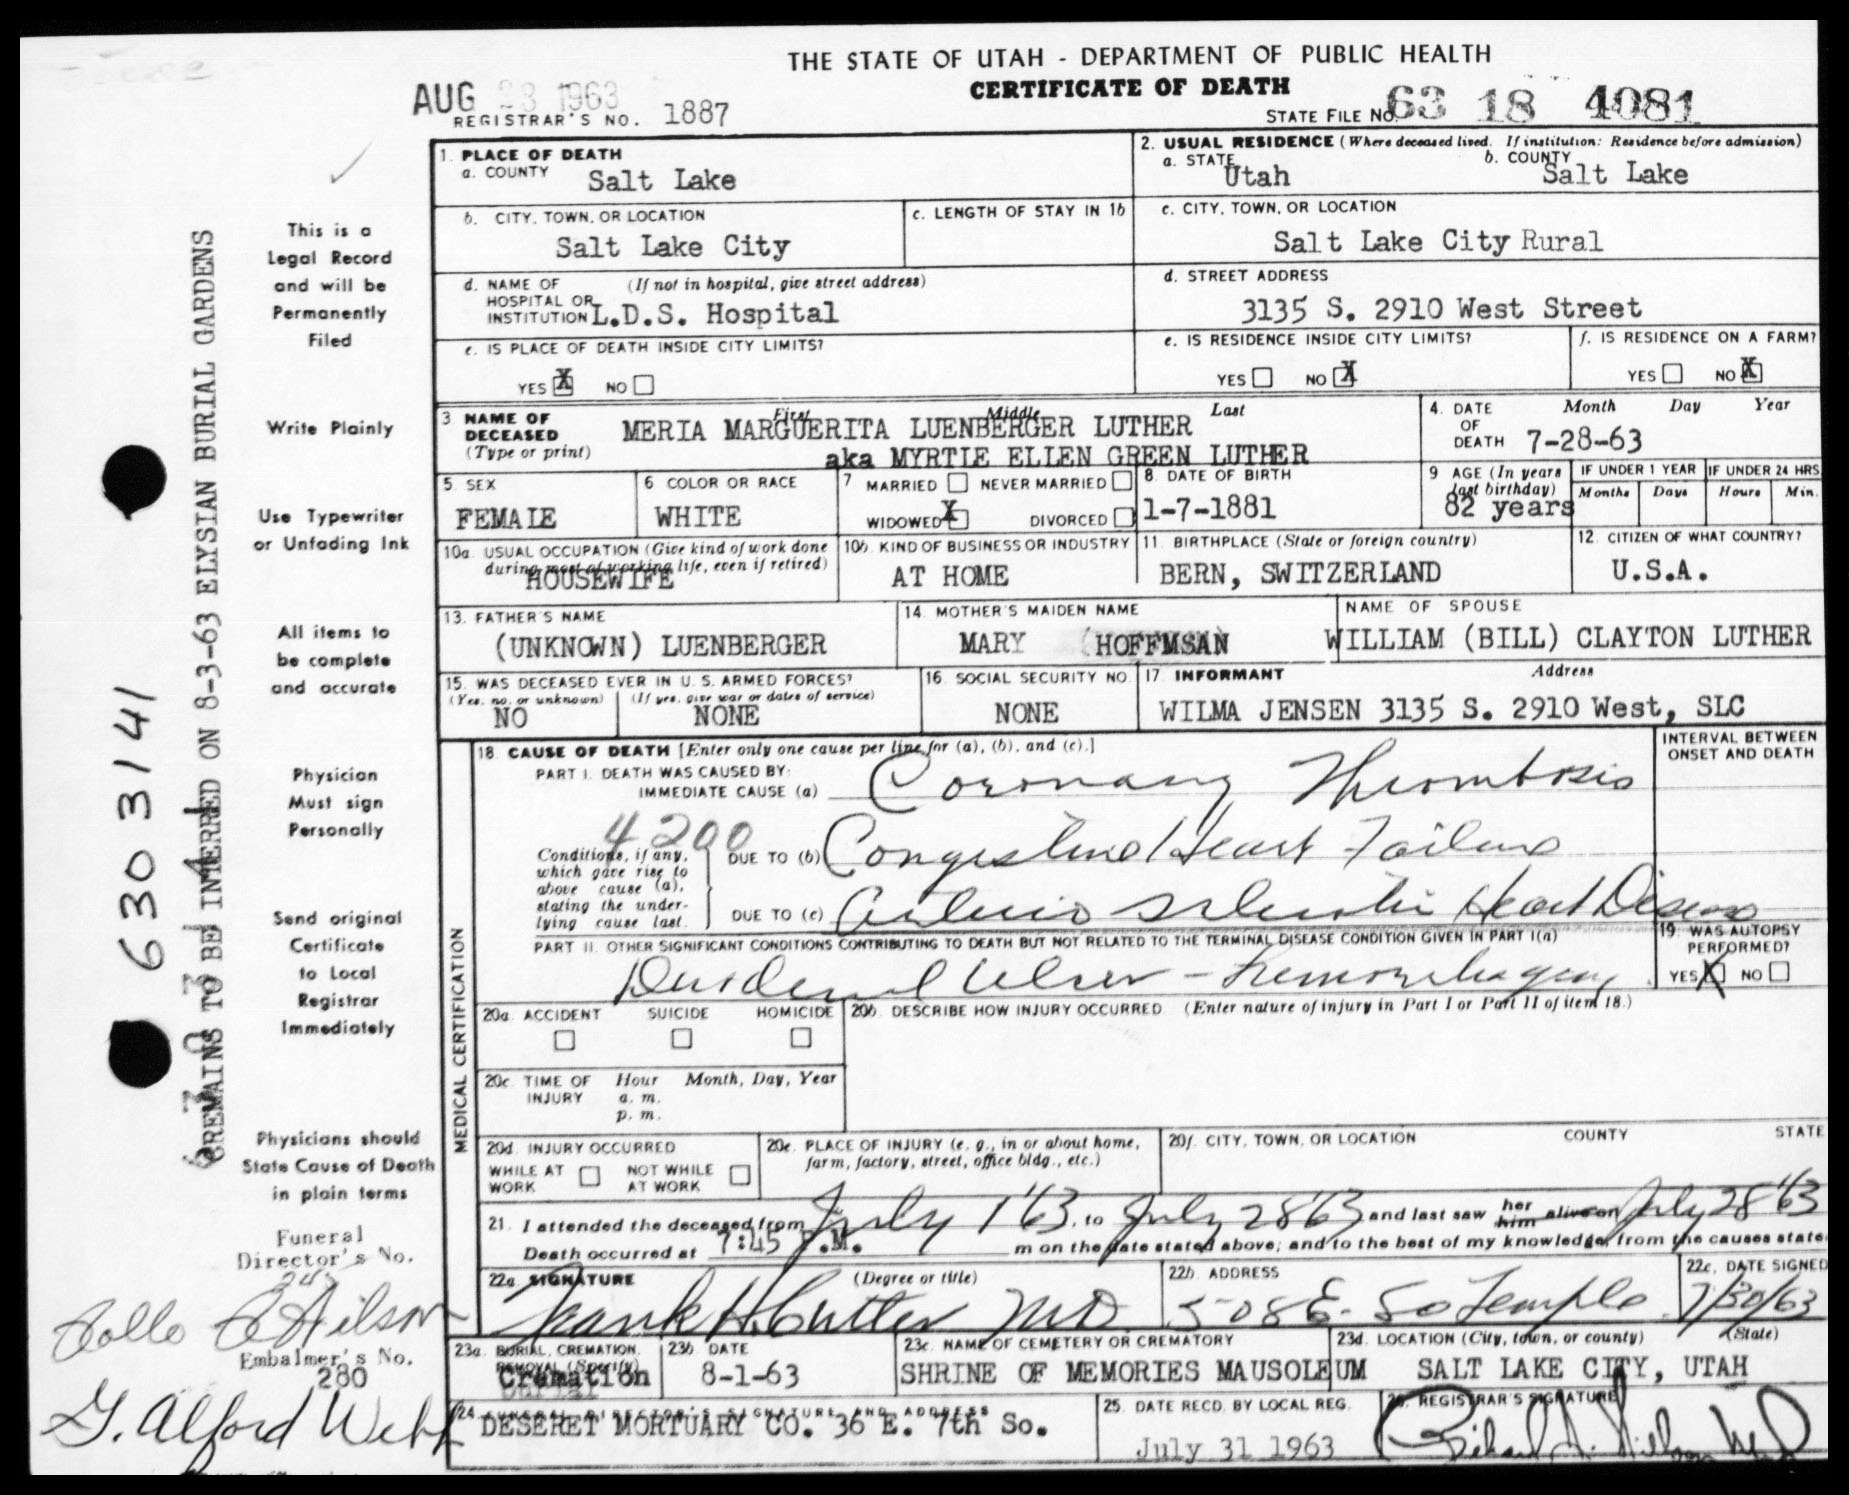 THE STATE OF UTAH - DEPARTMENT OF PUBLIC HEALTH
CERTIFICATE OF DEATH
AUG 23 1963
REGISTRAR'S NO. 1887
STATE FILE NO. 63 18 4081
1. PLACE OF DEATH
a. COUNTY Salt Lake
2. USUAL RESIDENCE (Where deceased lived. If institution: Residence before admission)
a. STATE Utah b. COUNTY Salt Lake
b. CITY, TOWN, OR LOCATION
Salt Lake City
c. LENGTH OF STAY IN 1b
c. CITY, TOWN, OR LOCATION
Salt Lake City Rural
d. NAME OF HOSPITAL OR INSTITUTION (If not in hospital, give street address)
L.D.S. Hospital
d. STREET ADDRESS
3135 S. 2910 West Street
e. IS PLACE OF DEATH INSIDE CITY LIMITS?
YES X NO
e. IS RESIDENCE INSIDE CITY LIMITS?
YES NO X
f. IS RESIDENCE ON A FARM?
YES NO X
3 NAME OF DECEASED (Type or print) First Middle Last
MERIA MARGUERITA LUENBERGER LUTHER
aka MYRTLE ELLEN GREEN LUTHER
4. DATE OF DEATH Month Day Year
7-28-63
5. SEX
FEMALE
6 COLOR OR RACE
WHITE
7 MARRIED NEVER MARRIED
WIDOWED X DIVORCED
8. DATE OF BIRTH
1-7-1881
9 AGE (In years last birthday)
82 years
IF UNDER 1 YEAR IF UNDER 24 HRS.
Months Days Hours Min.
10a. USUAL OCCUPATION (Give kind of work done during most of working life, even if retired)
HOUSEWIFE
10b. KIND OF BUSINESS OR INDUSTRY
AT HOME
11. BIRTHPLACE (State or foreign country)
BERN, SWITZERLAND
12. CITIZEN OF WHAT COUNTRY?
U.S.A.
13. FATHER'S NAME
(UNKNOWN) LUENBERGER
14. MOTHER'S MAIDEN NAME
MARY (HOFFMSAN
NAME OF SPOUSE
WILLIAM (BILL) CLAYTON LUTHER
15. WAS DECEASED EVER IN U. S. ARMED FORCES?
(Yes, no, or unknown) (If yes, give war or dates of service)
NO NONE
16. SOCIAL SECURITY NO.
NONE
17. INFORMANT Address
WILMA JENSEN 3135 S. 2910 West, SLC
18. CAUSE OF DEATH [Enter only one cause per line for (a), (b), and (c).]
INTERVAL BETWEEN ONSET AND DEATH
PART I. DEATH WAS CAUSED BY:
IMMEDIATE CAUSE (a) Coronary Thrombosis
4200
Conditions, if any, which gave rise to above cause (a), stating the underlying cause last.
DUE TO (b) Congestive Heart Failure
DUE TO (c) Arterio Sclerotic Heart Disease
PART II. OTHER SIGNIFICANT CONDITIONS CONTRIBUTING TO DEATH BUT NOT RELATED TO THE TERMINAL DISEASE CONDITION GIVEN IN PART I(a)
Duodenal Ulcer - Hemorrhaging
19. WAS AUTOPSY PERFORMED?
YES X NO
20a. ACCIDENT SUICIDE HOMICIDE
20b. DESCRIBE HOW INJURY OCCURRED (Enter nature of injury in Part I or Part II of item 18.)
20c. TIME OF INJURY Hour Month, Day, Year
a. m.
p. m.
20d. INJURY OCCURRED
WHILE AT WORK NOT WHILE AT WORK
20e. PLACE OF INJURY (e. g., in or about home, farm, factory, street, office bldg., etc.)
20f. CITY, TOWN, OR LOCATION COUNTY STATE
21. I attended the deceased from July 1 '63, to July 28 '63 and last saw her him alive on July 28 '63
Death occurred at 7:45 P.M. m on the date stated above; and to the best of my knowledge, from the causes state
22a. SIGNATURE (Degree or title)
Frank H. Cutler M.D.
22b. ADDRESS
508 E. So Temple
22c. DATE SIGNED
7/30/63
23a. BURIAL, CREMATION, REMOVAL (Specify)
Cremation
23b DATE
8-1-63
23c. NAME OF CEMETERY OR CREMATORY
SHRINE OF MEMORIES MAUSOLEUM
23d. LOCATION (City, town, or county) (State)
SALT LAKE CITY, UTAH
24. FUNERAL DIRECTOR'S SIGNATURE AND ADDRESS
DESERET MORTUARY CO. 36 E. 7th So.
25. DATE RECD. BY LOCAL REG.
July 31 1963
26. REGISTRAR'S SIGNATURE
MEDICAL CERTIFICATION
This is a
Legal Record
and will be
Permanently
Filed
Write Plainly
Use Typewriter
or Unfading Ink
All items to
be complete
and accurate
Physician
Must sign
Personally
Send original
Certificate
to Local
Registrar
Immediately
Physicians should
State Cause of Death
in plain terms
Funeral
Director's No.
Embalmer's No.
280
G. Alford Webb
CREMAINS TO BE INTERRED ON 8-3-63 ELYSIAN BURIAL GARDENS
6303141